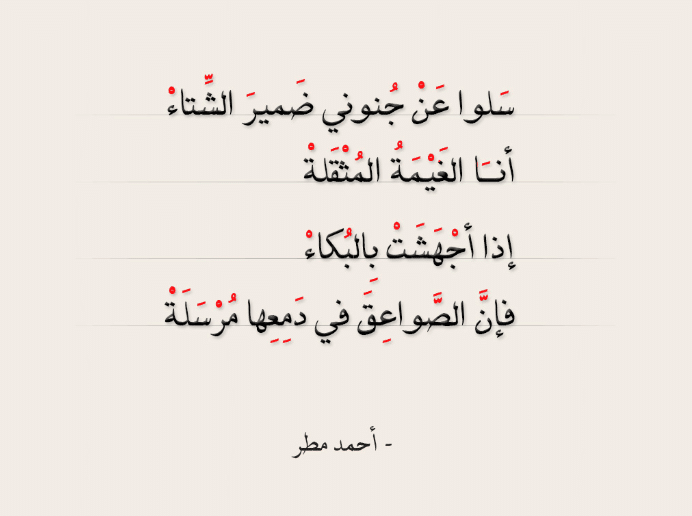 سَلوا عَنْ جُنوني ضَميرَ الشِّتاءْ
أنــَا الغَيْـمَةُ المُثْقَلةْ
إذا أجْهَشَتْ بِالبُكاءْ
فإنَّ الصَّواعِقَ في دَمِعِها مُرْسَلَةْ
- أحمد مطر